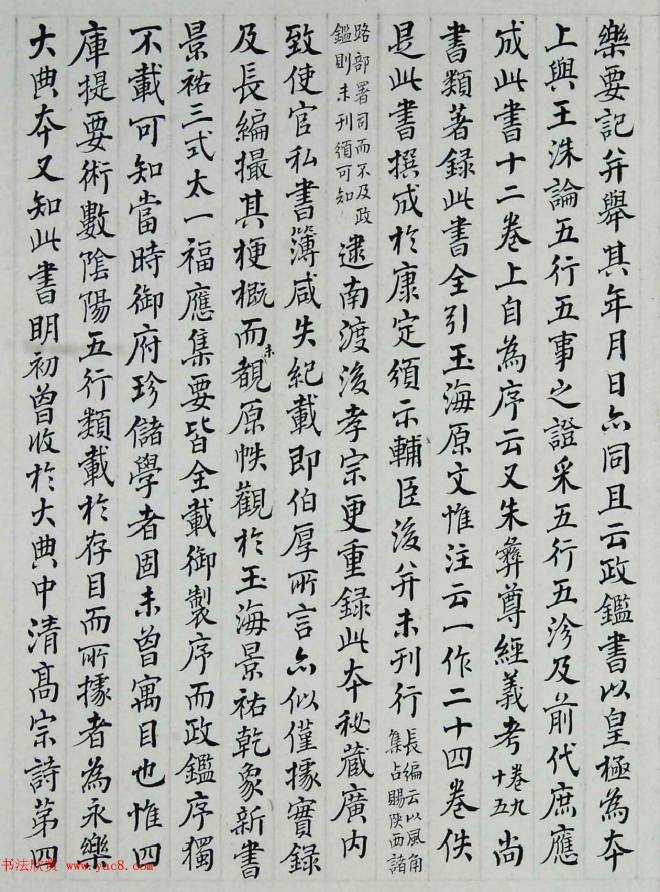 樂要記并舉其年月日亦同且云政鑑書以皇極為本
上與王洙論五行五事之證采五行五沴及前代庶應
成此書十二卷上自為序云又朱彝尊經義考卷九十五尚
書類著錄此書全引玉海原文惟注云一作二十四卷佚
是此書撰成於康定頒示輔臣後并未刊行長編云以風角集占賜陝西諸
路部署司而不及政鑑則未刊頒可知逮南渡後孝宗更重錄此本秘藏廣內
致使官私書簿咸失紀載即伯厚所言亦似僅據實錄
及長編撮其梗概而未覩原帙觀於玉海景祐乾象新書
景祐三式太一福應集要皆全載御製序而政鑑序獨
不載可知當時御府珍儲學者固未曾寓目也惟四
庫提要術數陰陽五行類載於存目而所據者為永樂
大典本又知此書明初曾收於大典中清高宗詩第四
书法欣赏 www.yac8.com